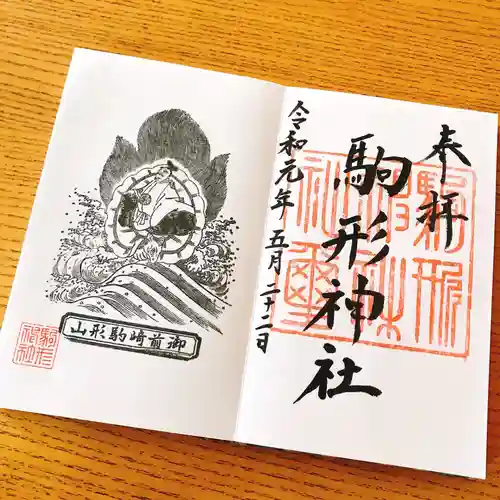 奉拝
駒形神社
令和元年五月二十二日
御前崎駒形山
駒形
神社